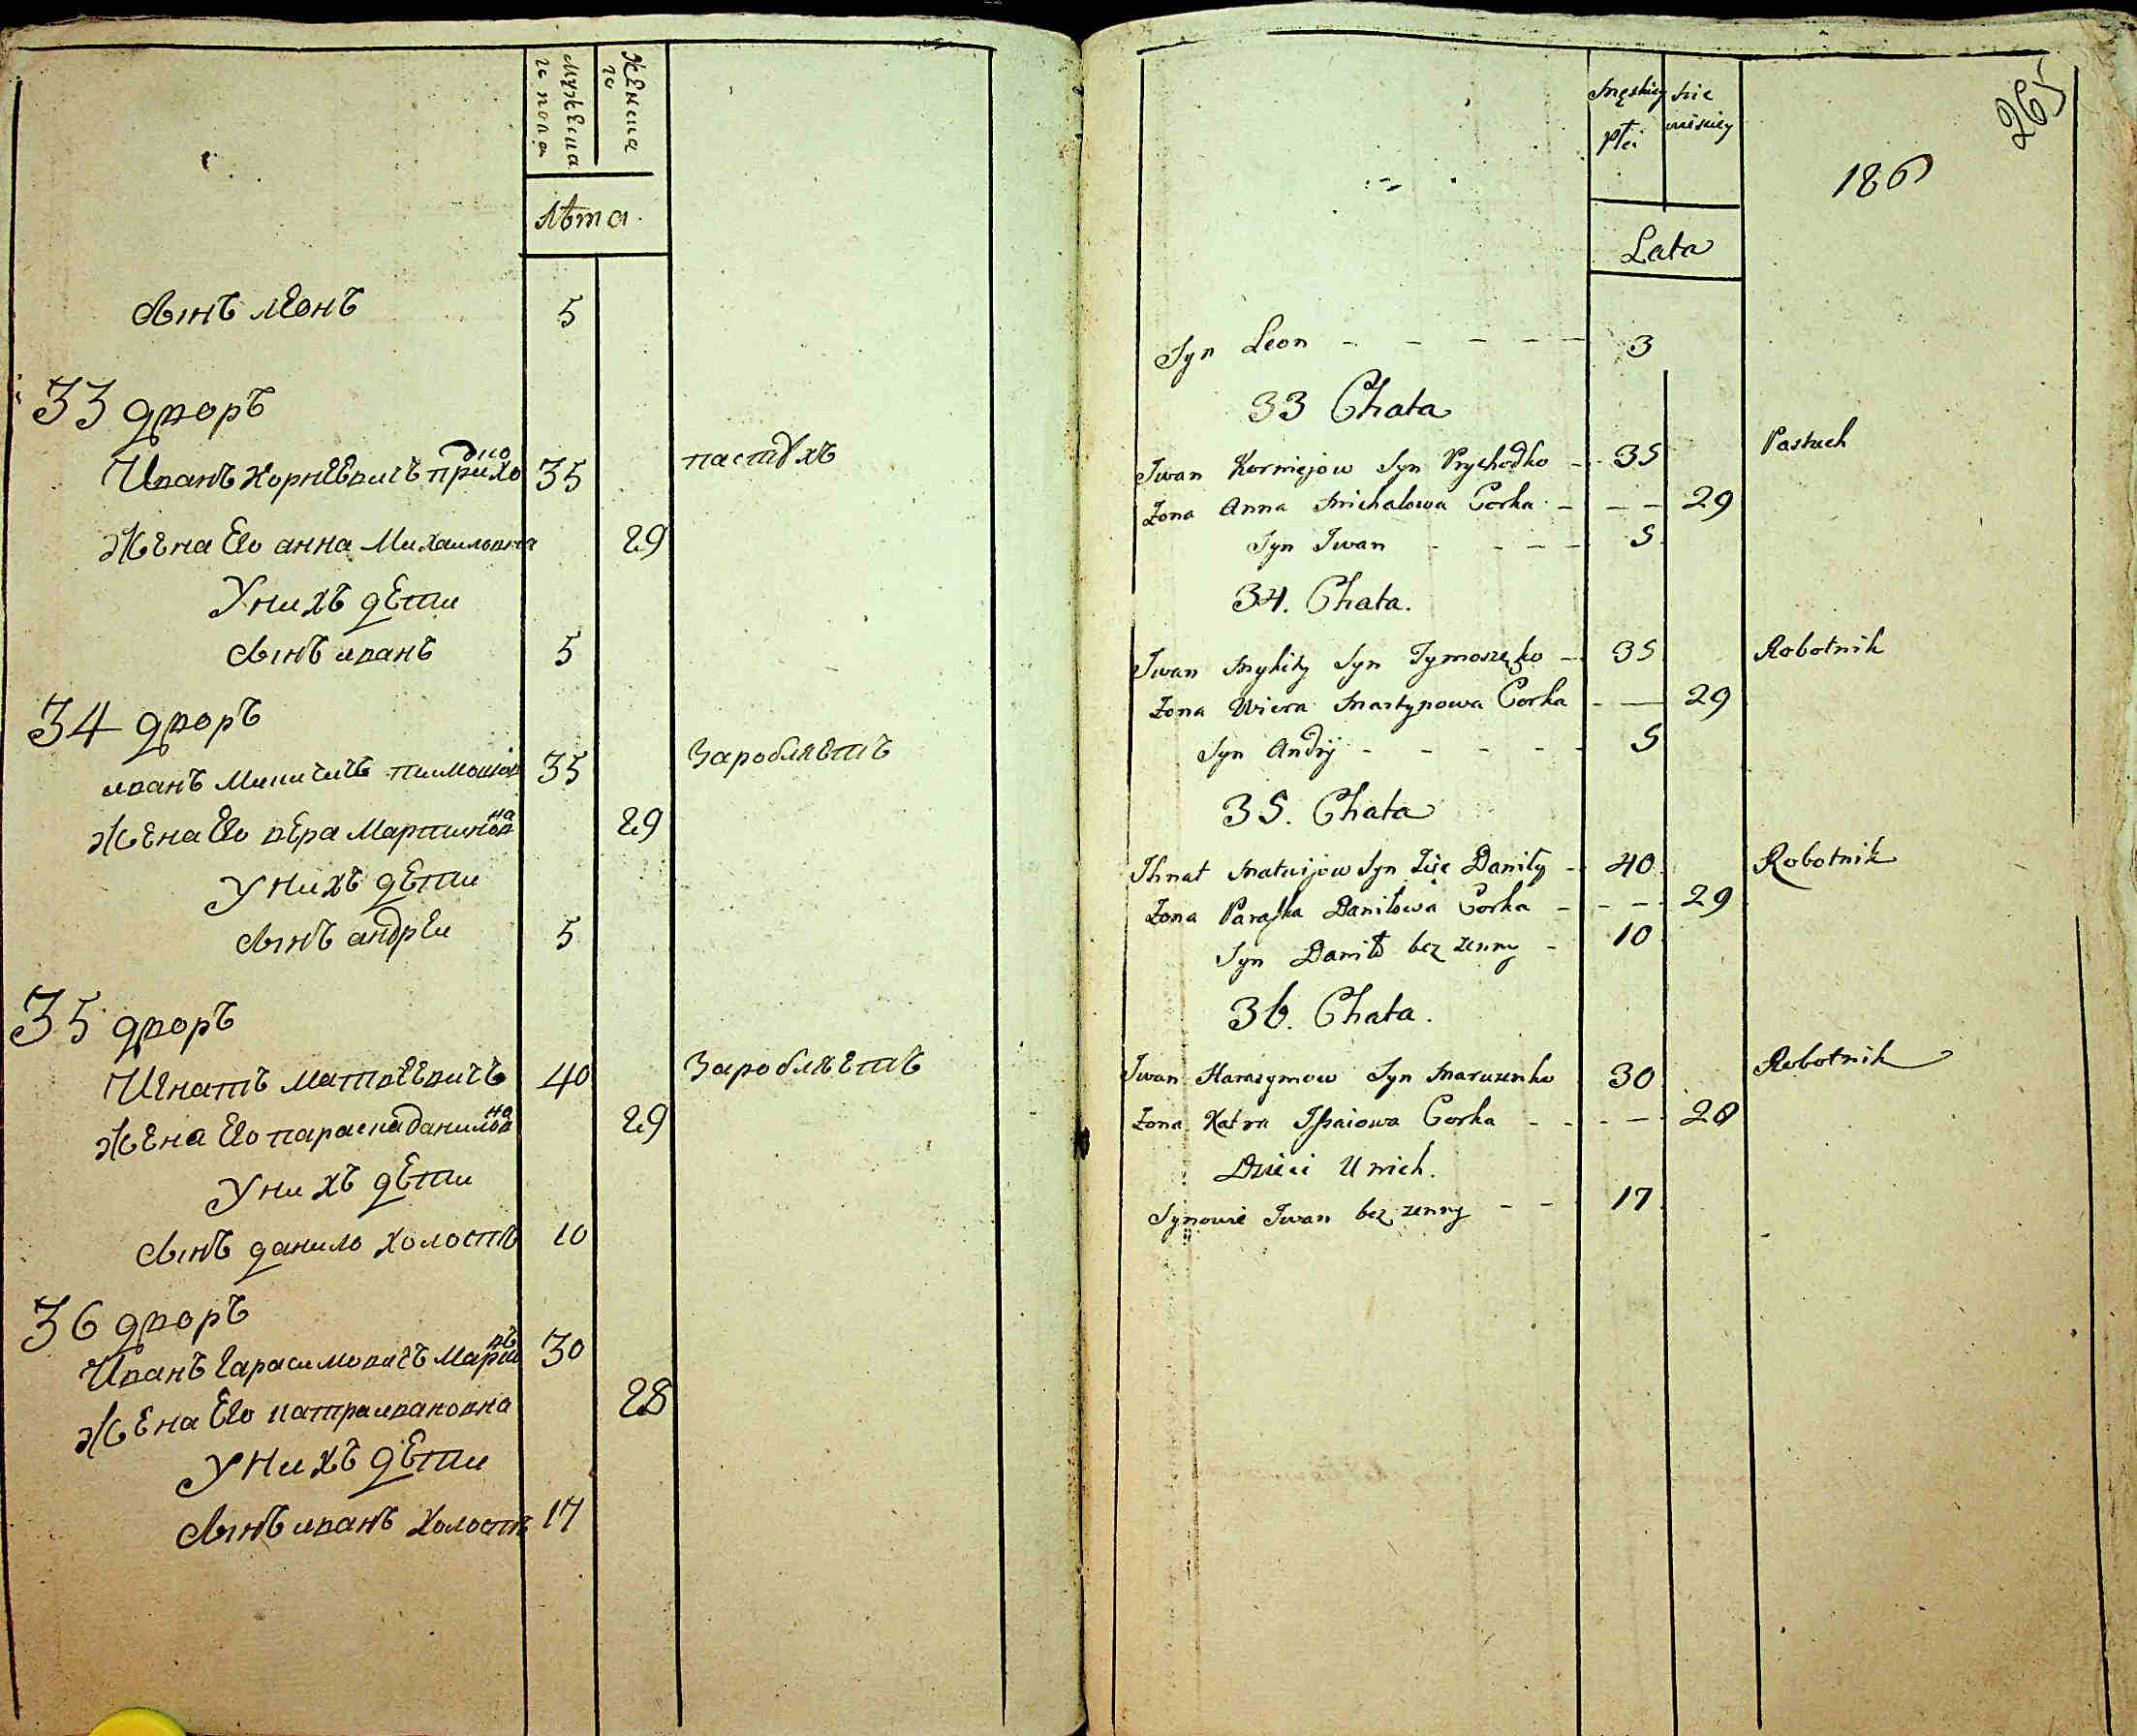 мужеска
го пола
женска
го
лѣта
сынъ леонъ 5
33 дворъ
Иванъ корнѣевичъ приходко 35 пастухъ
жена Его анна Михаиловна 29
У нихъ дети
сынъ иванъ 5
34 дворъ
иванъ Микитичъ тимошов 35 заробляетъ
жена Его вера Мартиновна 29
У нихъ дети
сынъ андреи 5
35 дворъ
Игнатъ матвѣевичъ 40 заробляетъ
жена Его параска даниловна 29
У нихъ дети
сынъ данило холостъ 10
36 дворъ
Иванъ гарасимовичъ 30
жена Его катра ивановна 28
У нихъ дети
сынъ иванъ холостъ 17
265
męskiey że
płci nieskiey
186
Lata
Syn Leon - - - - - 3
33 Chata
Iwan Korniejow Syn Prychodko - 35 Pastuch
Żona Anna Michałowa Corka - - - 29
Syn Iwan - - - - 5
34. Chata.
Iwan Mykity Syn Tymoszęko - 35 Robotnik
Żona Wiera Martynowa Corka - - 29
Syn Andrij - - - - - 5
35. Chata
Ihnat Matwijow Syn Daniły - 40 Robotnik
Żona Paraska Daniłowa Corka - - - 29
Syn Daniło bez zenny - 10
36. Chata.
Iwan Harasymow Syn Maruzenko 30 Robotnik
Żona Katra Corka - - - - 28
Dzieci U nich.
Synowie Iwan bez zenny - - 17